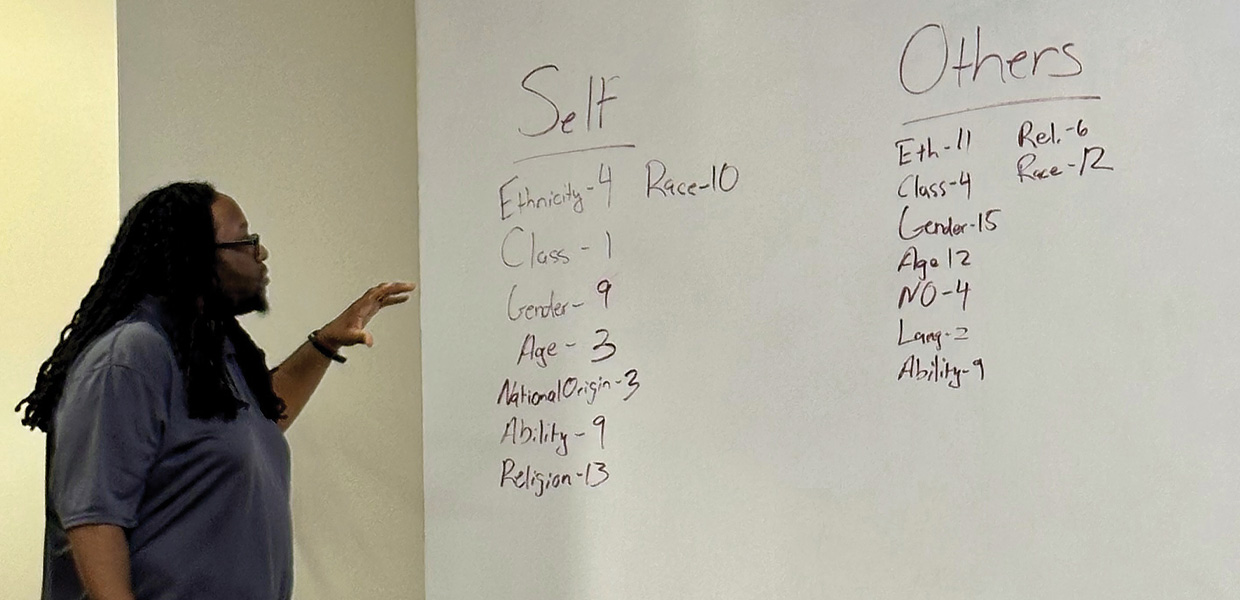 Self
Ethnicity-4 Race-10
Class - 1
Gender- 9
Age - 3
National Origin-3
Ability - 9
Religion-13
Others
Eth-11 Rel.-6
Class-4 Race-12
Gender-15
Age 12
NO-4
Lang-2
Ability-9